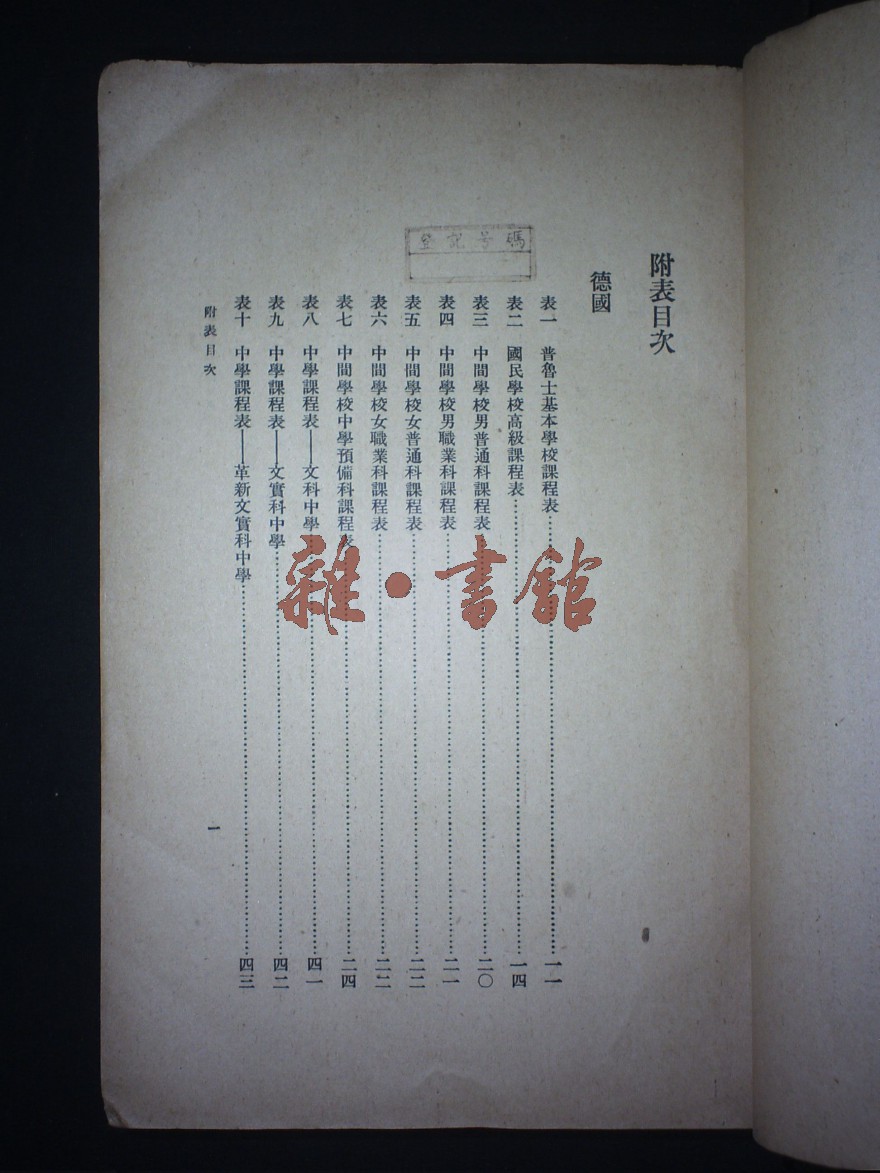 附表目次
德國
登記号碼
表一 普魯士基本學校課程表……一二
表二 國民學校高級課程表……一四
表三 中間學校男普通科課程表……二〇
表四 中間學校男職業科課程表……二一
表五 中間學校女普通科課程表……二二
表六 中間學校女職業科課程表……二二
表七 中間學校中學預備科課程表……二四
表八 中學課程表——文科中學……四一
表九 中學課程表——文實科中學……四二
表十 中學課程表——革新文實科中學……四三
附表目次
一
雜·書館